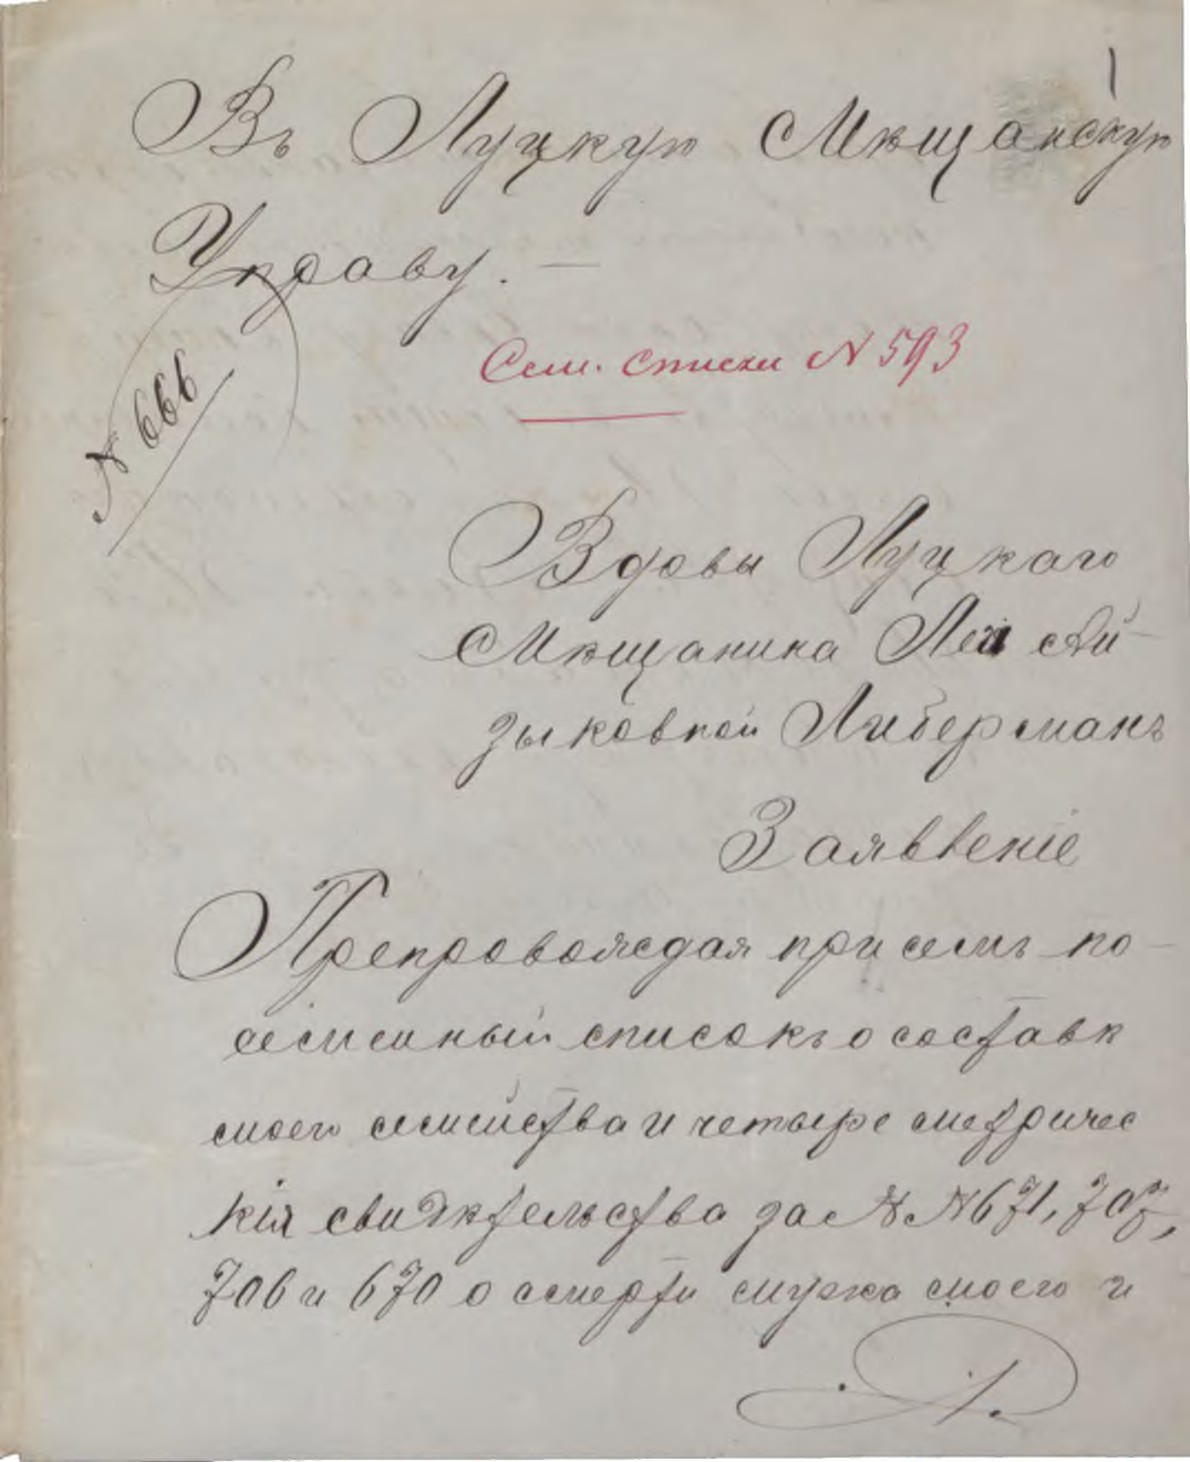 1
Въ Луцкую Мѣщанскую
Управу. —
Сем. списки N 593
N 666
Вдовы Луцкаго
Мѣщанина Леи Ай-
зыковной Либерманъ
Заявленіе
Препровождая при семъ по-
семейный списокъ о составѣ
моего семейства и четыре метричес
кія свидѣтельства за N N 671, 707,
706 и 670 о смерти мужа моего и